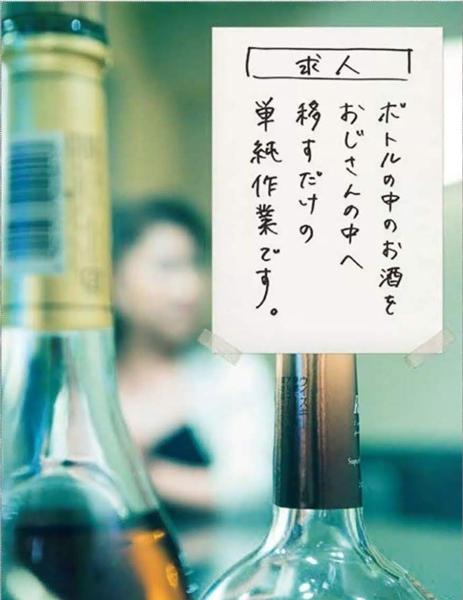 求人
ボトルの中のお酒を
おじさんの中へ
移すだけの
単純作業です。